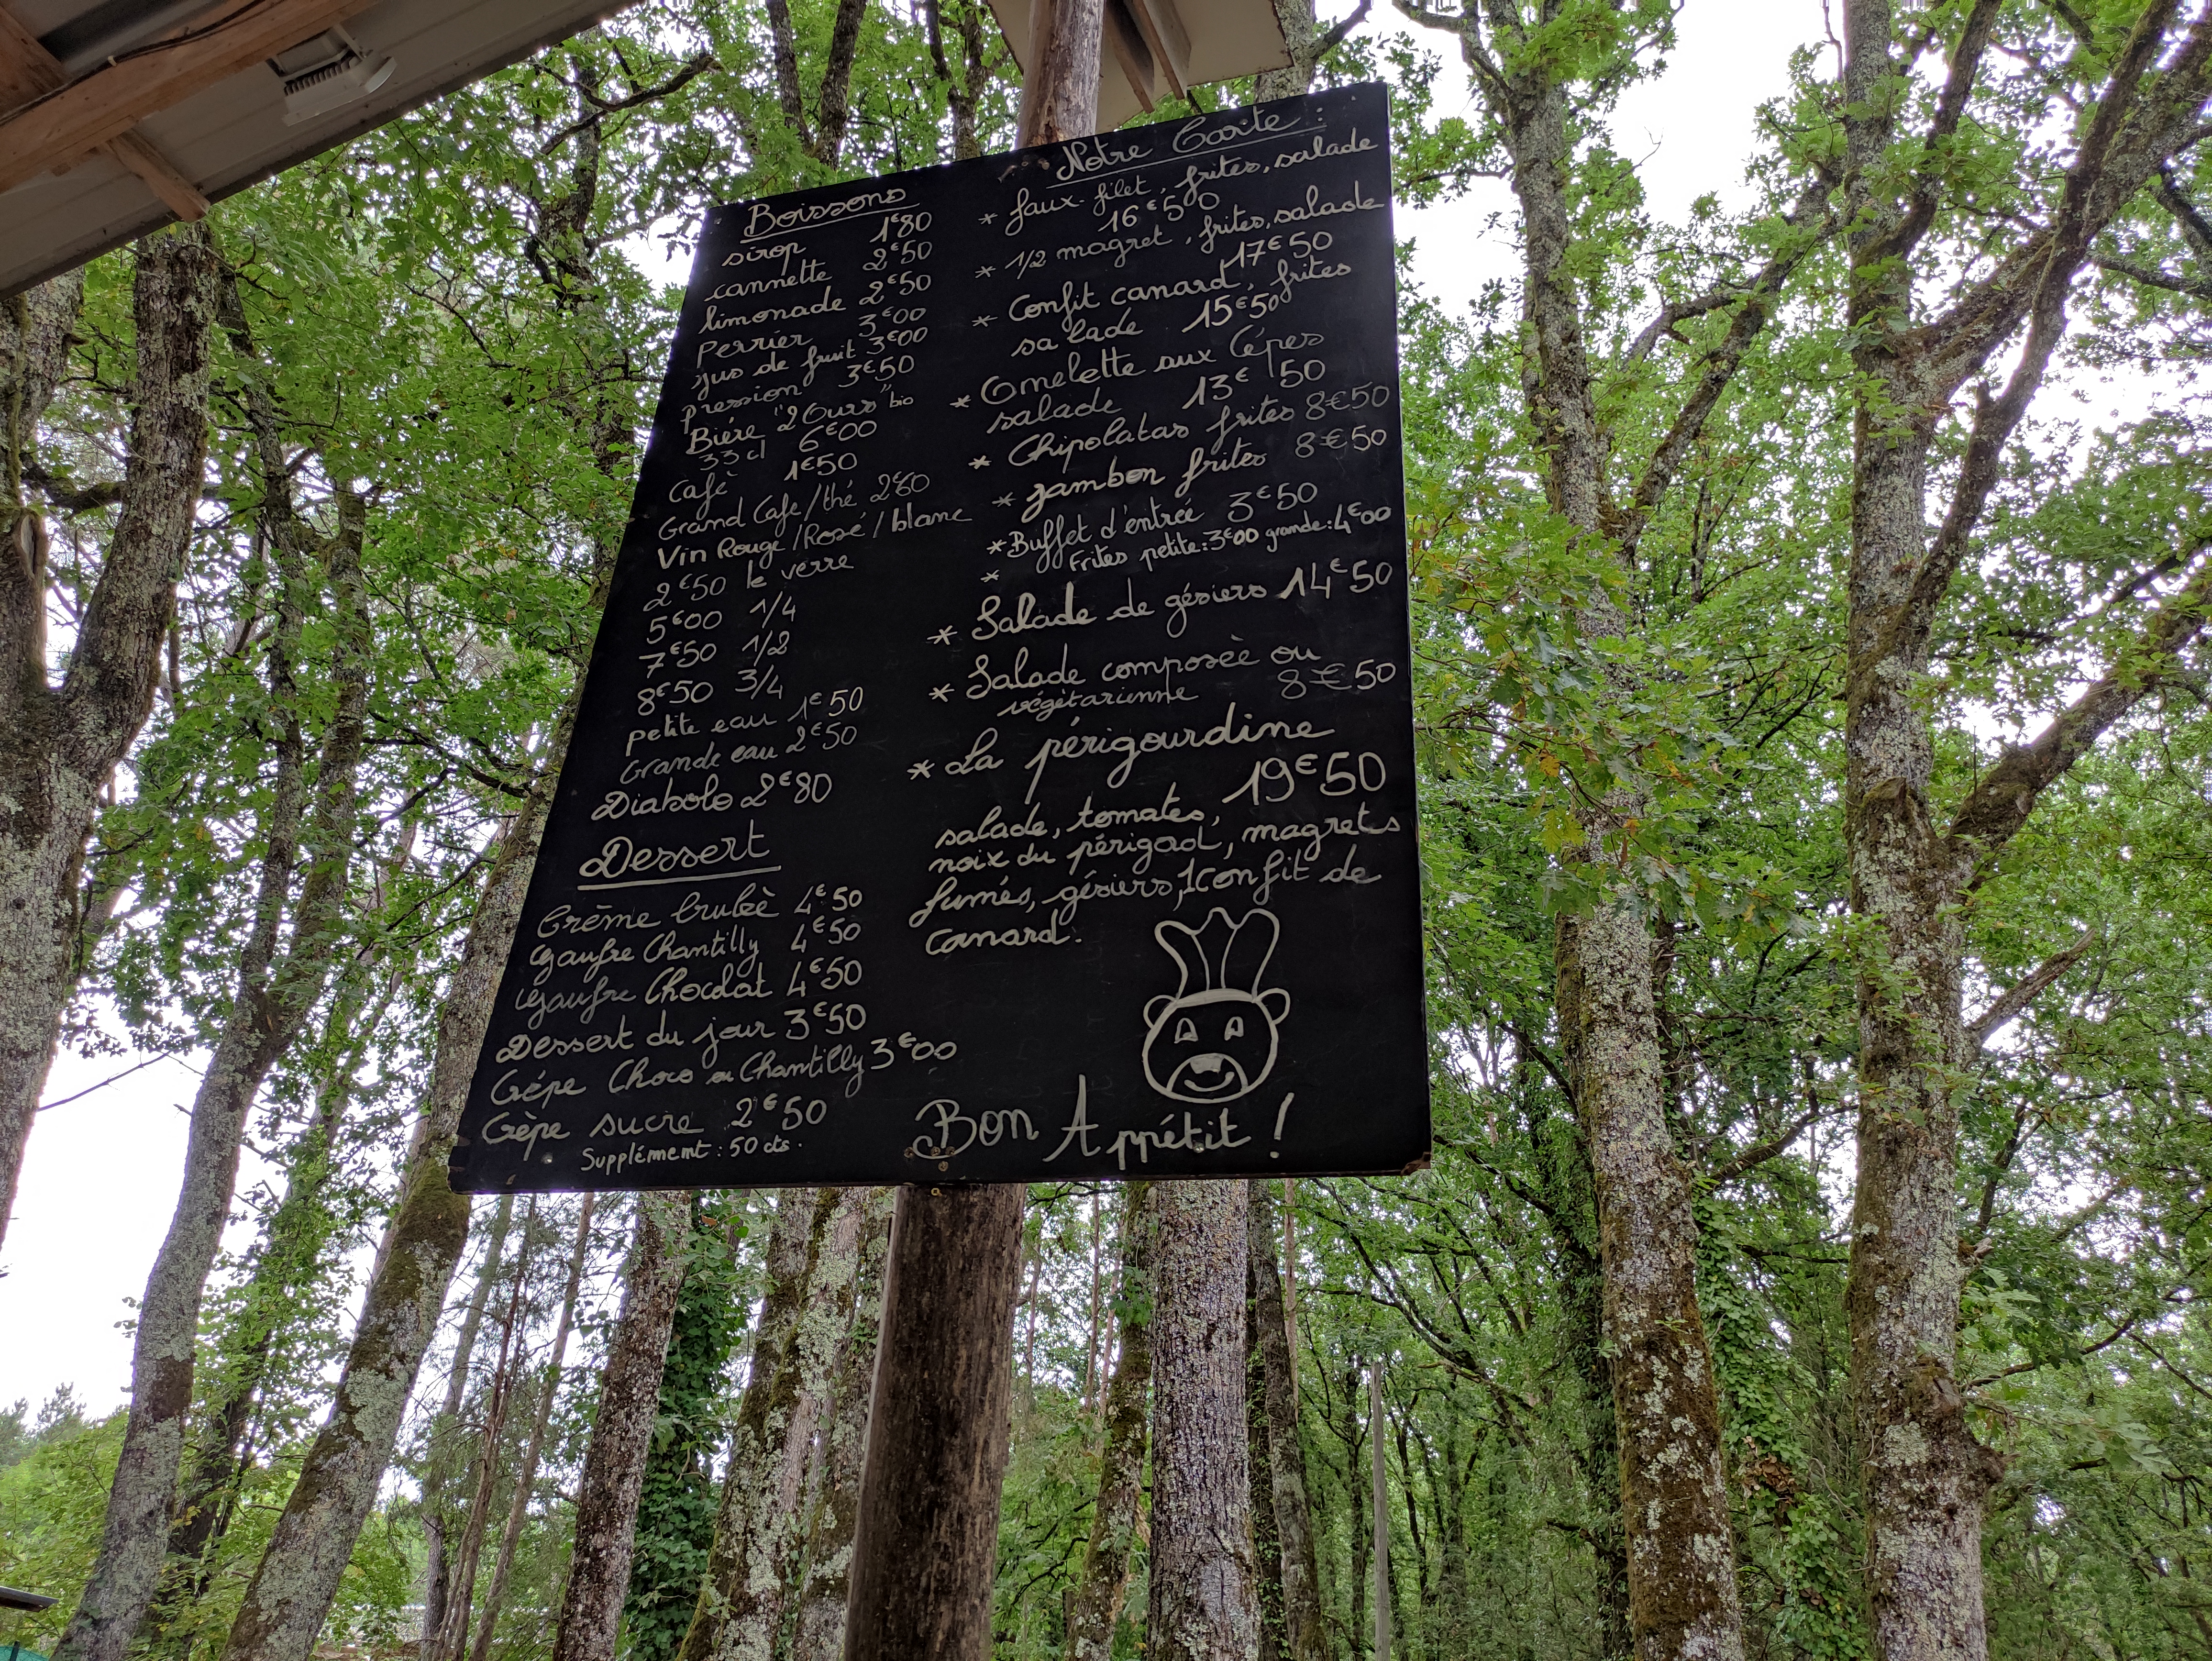 Boissons
sirop 1€80
cannette 2€50
limonade 2€50
Perrier 3€00
jus de fruit 3€00
pression 3€50
Bière "2 Ours" bio
33 cl 6€00
Café 1€50
Grand Café/thé 2€80
Vin Rouge/Rosé/blanc
2€50 le verre
5€00 1/4
7€50 1/2
8€50 3/4
petite eau 1€50
Grande eau 2€50
Diabolo 2€80
Dessert
Crème brulèè 4€50
gaufre Chantilly 4€50
gaufre Chocolat 4€50
Dessert du jour 3€50
Crêpe Choco ou Chantilly 3€00
Crèpe sucre 2€50
Supplément : 50 cts.
Notre Carte :
* faux-filet, frites, salade
16€50
* 1/2 magret, frites, salade
17€50
* Confit canard, frites
salade 15€50
* Omelette aux Cépes
salade 13€50
* Chipolatas frites 8€50
* Jambon frites 8€50
* Buffet d'entrée 3€50
* Frites petite:3€00 grande:4€00
* Salade de gésiers 14€50
* Salade composèe ou
végétarienne 8€50
* La périgourdine
19€50
salade, tomates,
noix du périgod, magrets
fumés, gésiers, 1confit de
canard.
Bon Appétit !